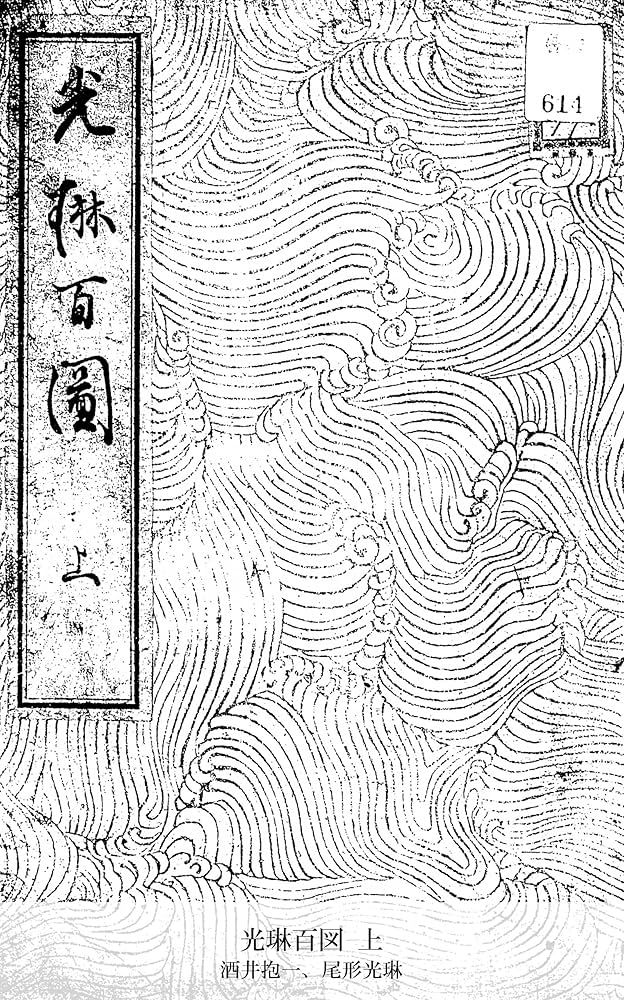 光琳百圖 上
614
77
光琳百図 上
酒井抱一、尾形光琳